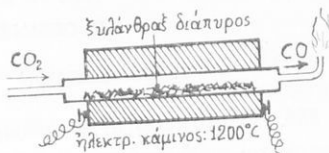 ξυλάνθραξ διάπυρος
CO₂
CO
ἠλεκτρ. κάμινος: 1200°C